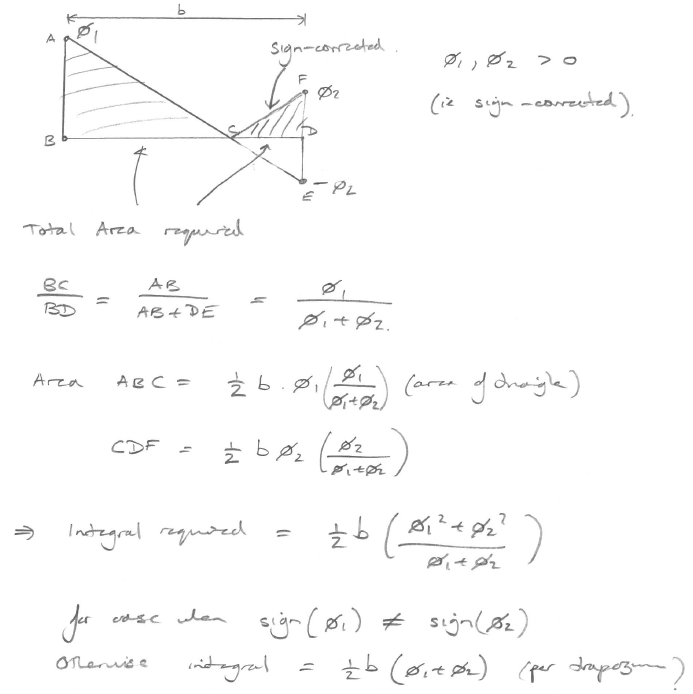 b
A ø₁
sign-corrected.
ø₁, ø₂ > 0
F ø₂
(ie sign-corrected).
B C D
E -ø₂
Total Area required
BC/BD = AB/(AB+DE) = ø₁/(ø₁+ø₂).
Area ABC = ½ b . ø₁(ø₁/(ø₁+ø₂)) (area of triangle)
CDF = ½ b ø₂ (ø₂/(ø₁+ø₂))
⇒ Integral required = ½ b ((ø₁²+ø₂²)/(ø₁+ø₂))
for case when sign(ø₁) ≠ sign(ø₂)
Otherwise integral = ½ b (ø₁+ø₂) (per trapezium)